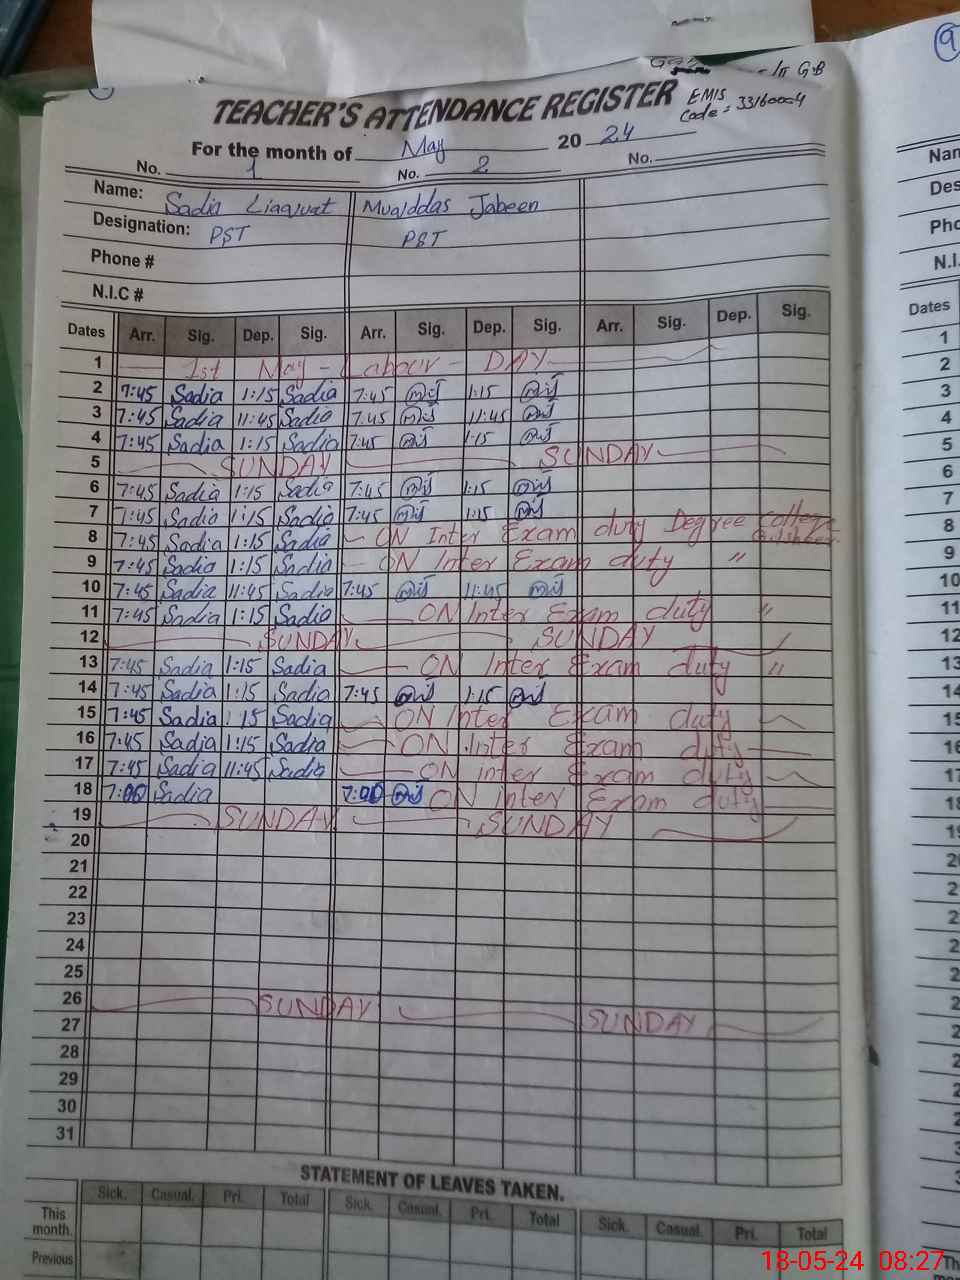 9
/π G.B
TEACHER'S ATTENDANCE REGISTER
EMIS
Code = 33160004
For the month of May 2024
No. 1 No. 2 No.
Name: Sadia Liaquat Muqddas Jabeen
Designation: PST PST
Phone #
N.I.C #
Dates Arr. Sig. Dep. Sig. Arr. Sig. Dep. Sig. Arr. Sig. Dep. Sig.
1 1st May - Labour - DAY
2 7:45 Sadia 1:15 Sadia 7:45 1:15
3 7:45 Sadia 11:45 Sadia 7:45 11:45
4 7:45 Sadia 1:15 Sadia 7:45 1:15
5 SUNDAY SUNDAY
6 7:45 Sadia 1:15 Sadia 7:45 1:15
7 7:45 Sadia 1:15 Sadia 7:45 1:15
8 7:45 Sadia 1:15 Sadia ON Inter Exam duty Degree College
9 7:45 Sadia 1:15 Sadia ON Inter Exam duty "
10 7:45 Sadia 11:45 Sadia 7:45 11:45
11 7:45 Sadia 1:15 Sadia ON Inter Exam duty "
12 SUNDAY SUNDAY
13 7:45 Sadia 1:15 Sadia ON Inter Exam duty "
14 7:45 Sadia 1:15 Sadia 7:45 1:15
15 7:45 Sadia 1:15 Sadia ON Inter Exam duty
16 7:45 Sadia 1:15 Sadia ON Inter Exam duty
17 7:45 Sadia 11:45 Sadia ON inter Exam duty
18 7:00 Sadia 7:00 ON inter Exam duty
19 SUNDAY SUNDAY
20
21
22
23
24
25
26 SUNDAY SUNDAY
27
28
29
30
31
STATEMENT OF LEAVES TAKEN.
Sick. Casual. Pri. Total Sick. Casual. Pri. Total Sick. Casual. Pri. Total
This month.
Previous
18-05-24 08:27
Nam
Des
Pho
N.I.
Dates
1
2
3
4
5
6
7
8
9
10
11
12
13
14
15
16
17
18
19